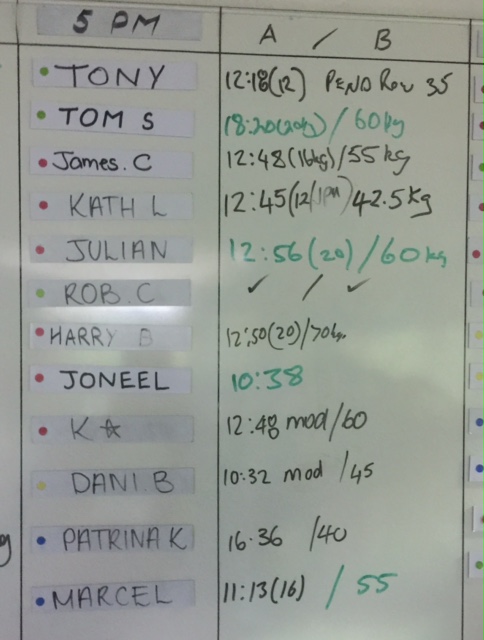 5 PM A / B
TONY 12:18(12) PEND Row 35
TOM S 18:20(20kg) / 60kg
James.C 12:48(16kg)/55 kg
KATH L 12:45(12/1PM) 42.5kg
JULIAN 12:56(20)/60kg
ROB.C ✓ / ✓
HARRY B 12:50(20)/70kg
JONEEL 10:38
K☆ 12:48 mod/60
DANI.B 10:32 mod /45
PATRINA K 16.36 /40
MARCEL 11:13(16) / 55